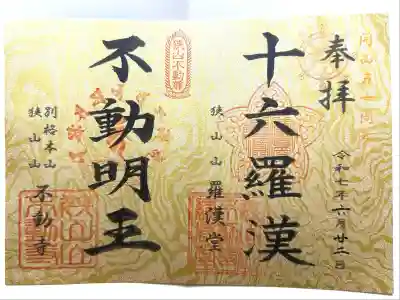 奉拝
令和七年六月廿三日
十六羅漢
狭山山 羅漢堂
狭山不動尊
不動明王
別格本山
狭山山 不動寺